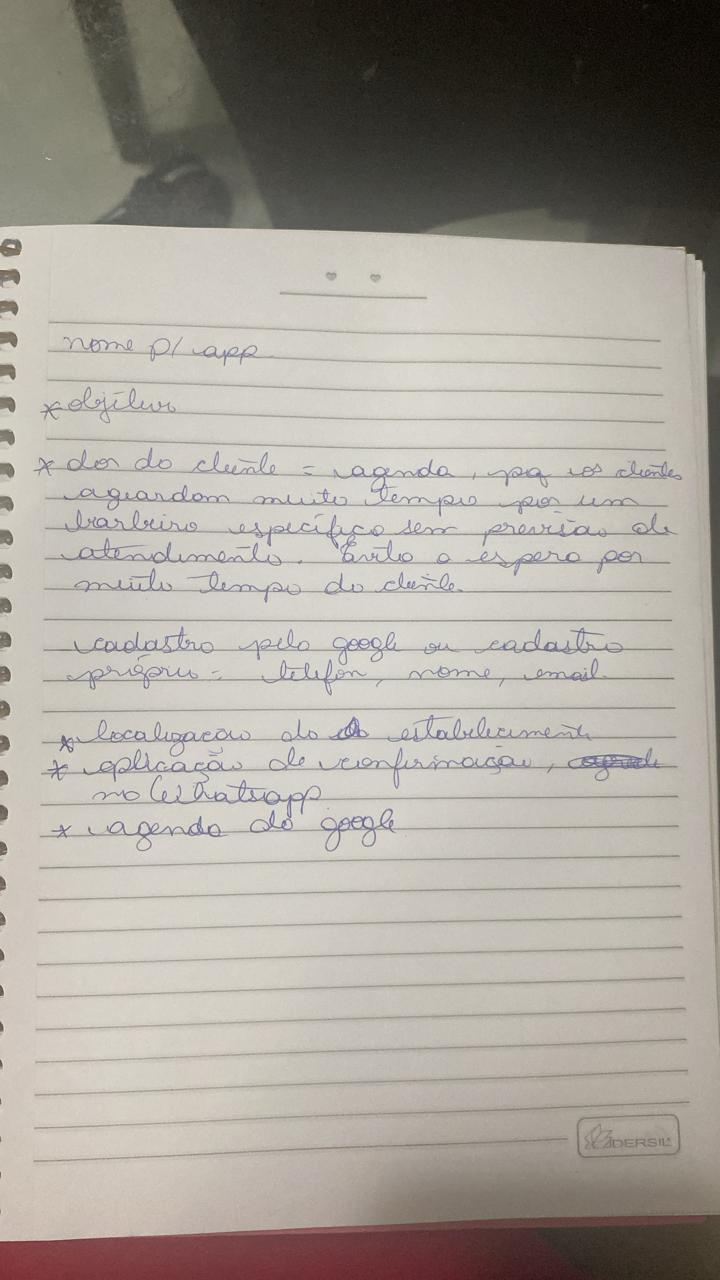 nome p/ app
* objetivo
* dor do cliente = agenda, pq os clientes
aguardam muito tempo por um
barbeiro específico sem previsão de
atendimento. Evito a espera por
muito tempo do cliente.
cadastro pelo google ou cadastro
próprio = telefon, nome, email.
* localização do estabelecimento
* aplicação de confirmação,
no Whatsapp
* agenda do google
ADERSIL